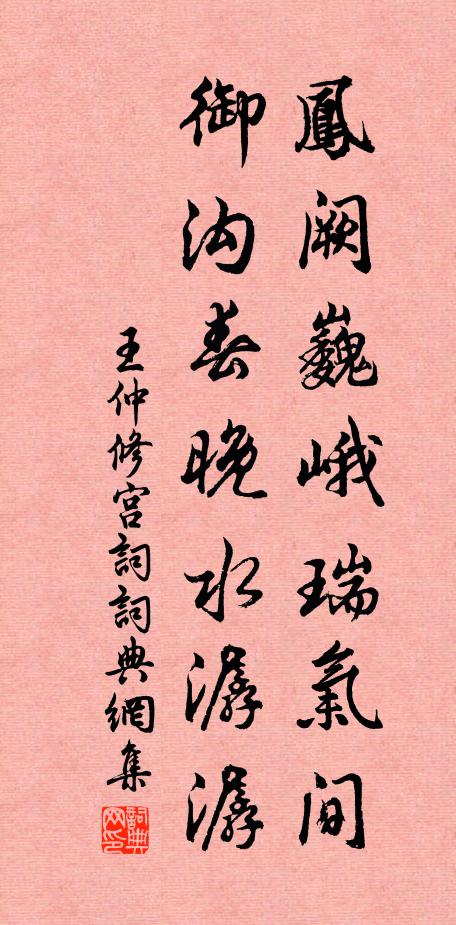 鳳闕巍峨瑞氣間
御沟春晚水潺潺
王仲修宮詞詞典網集
詞典网印